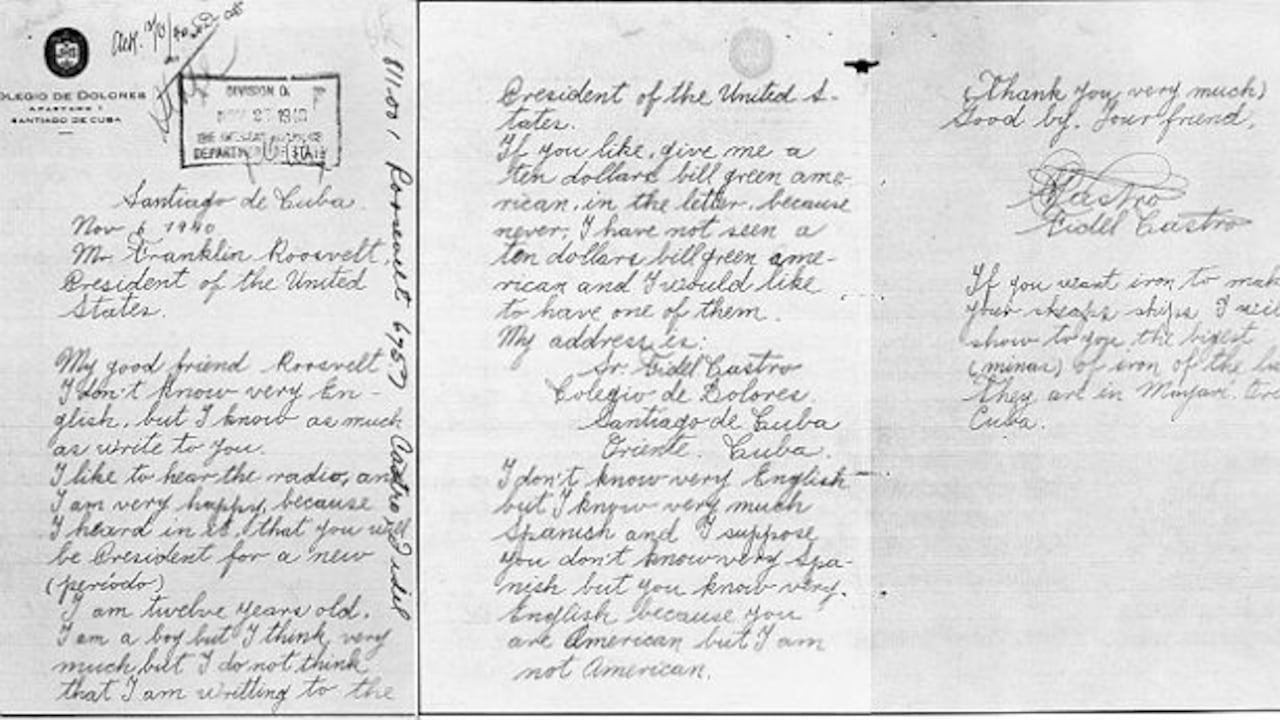 OLEGIO DE DOLORES
APARTADO 1
SANTIAGO DE CUBA
DIVISION O
NOV 27 1940
DEPARTM STATE
Santiago de Cuba.
Nov 6 1940
Mr. Franklin Roosvelt,
President of the United
States.
My good friend Roosvelt
I don't know very En-
glish, but I know as much
as write to you.
I like to hear the radio, and
I am very happy, because
I heard in it, that you will
be President for a new
(periodo)
I am twelve years old.
I am a boy but I think very
much but I do not think
that I am writting to the
811.001 Roosevelt 6757 Castro, Fidel
President of the United S-
tates.
If you like, give me a
ten dollars bill green ame-
rican, in the letter, because
never, I have not seen a
ten dollars bill green ame-
rican and I would like
to have one of them.
My address is:
Sr. Fidel Castro
Colegio de Dolores.
Santiago de Cuba
Oriente. Cuba.
I don't know very English
but I know very much
Spanish and I suppose
you don't know very Spa-
nish but you know very
English because you
are American but I am
not American.
(Thank you very much)
Good by. Your friend,
Castro
Fidel Castro
If you want iron to mak
your sheaps ships I will
show to you the bigest
(minas) of iron of the la
They are in Mayari. Ori
Cuba.